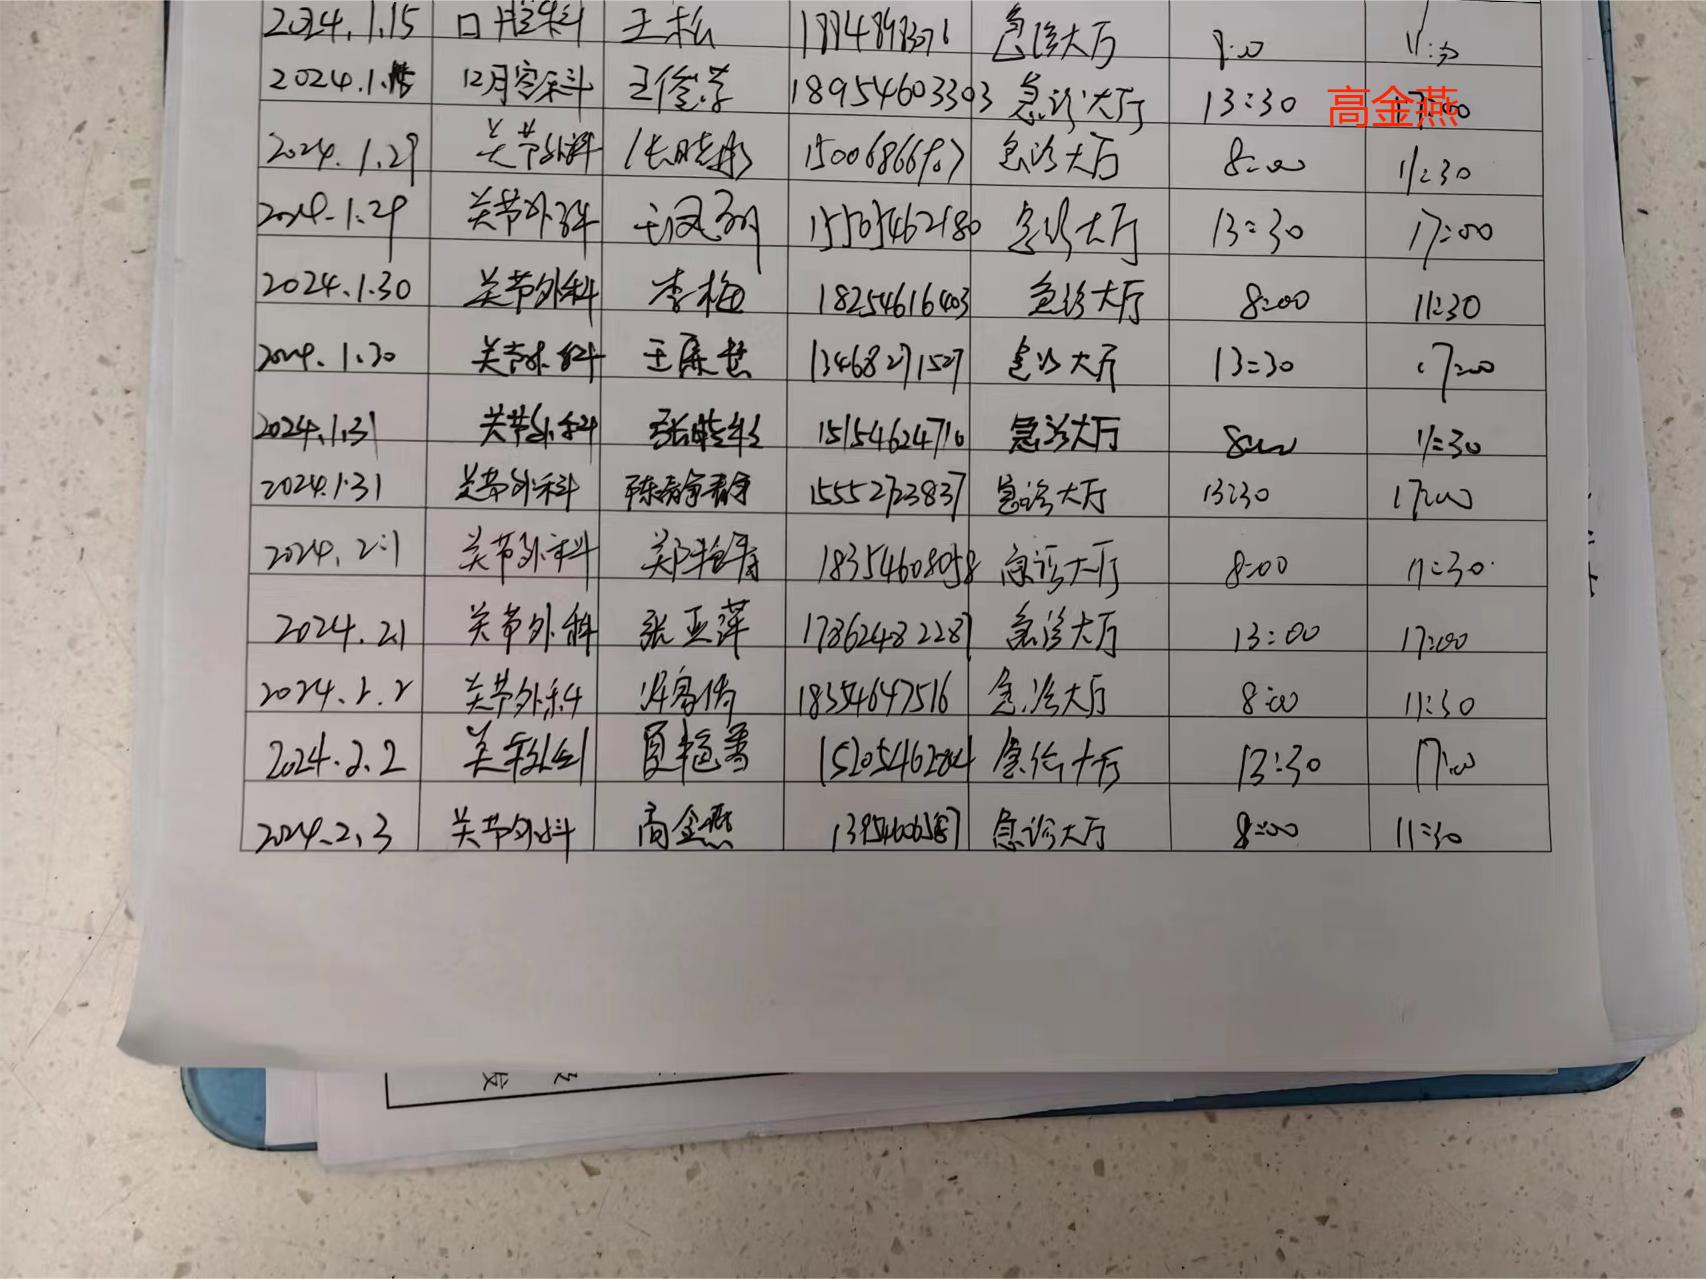 2024.1.15 口腔科 王松 急诊大厅 8:00 11:30
2024.1.15 口腔科 18954603303 急诊大厅 13:30 17:00
高金燕
2024.1.29 关节外科 张晓彤 15006866987 急诊大厅 8:00 11:30
2024.1.29 关节外科 15505462180 急诊大厅 13:30 17:00
2024.1.30 关节外科 李梅 18254616403 急诊大厅 8:00 11:30
2024.1.30 关节外科 13468271527 急诊大厅 13:30 17:00
2024.1.31 关节外科 15154624710 急诊大厅 8:00 11:30
2024.1.31 关节外科 陈静静 15552723837 急诊大厅 13:30 17:00
2024.2.1 关节外科 18354608058 急诊大厅 8:00 11:30
2024.2.1 关节外科 张亚萍 17862482287 急诊大厅 13:00 17:00
2024.2.2 关节外科 18354647516 急诊大厅 8:00 11:30
2024.2.2 关节外科 急诊大厅 13:30 17:00
2024.2.3 关节外科 高金燕 13954606587 急诊大厅 8:00 11:30